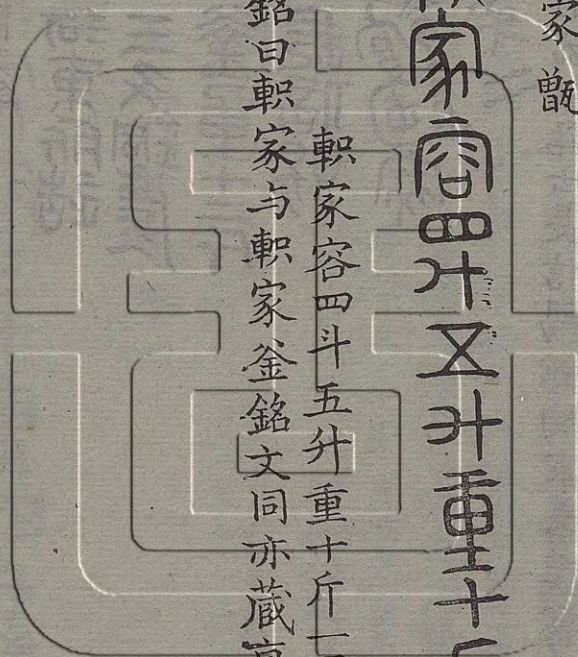 家甑
家容四斗五升重十
軹家容四斗五升重十斤一
銘曰軹家与軹家釜銘文同亦蔵